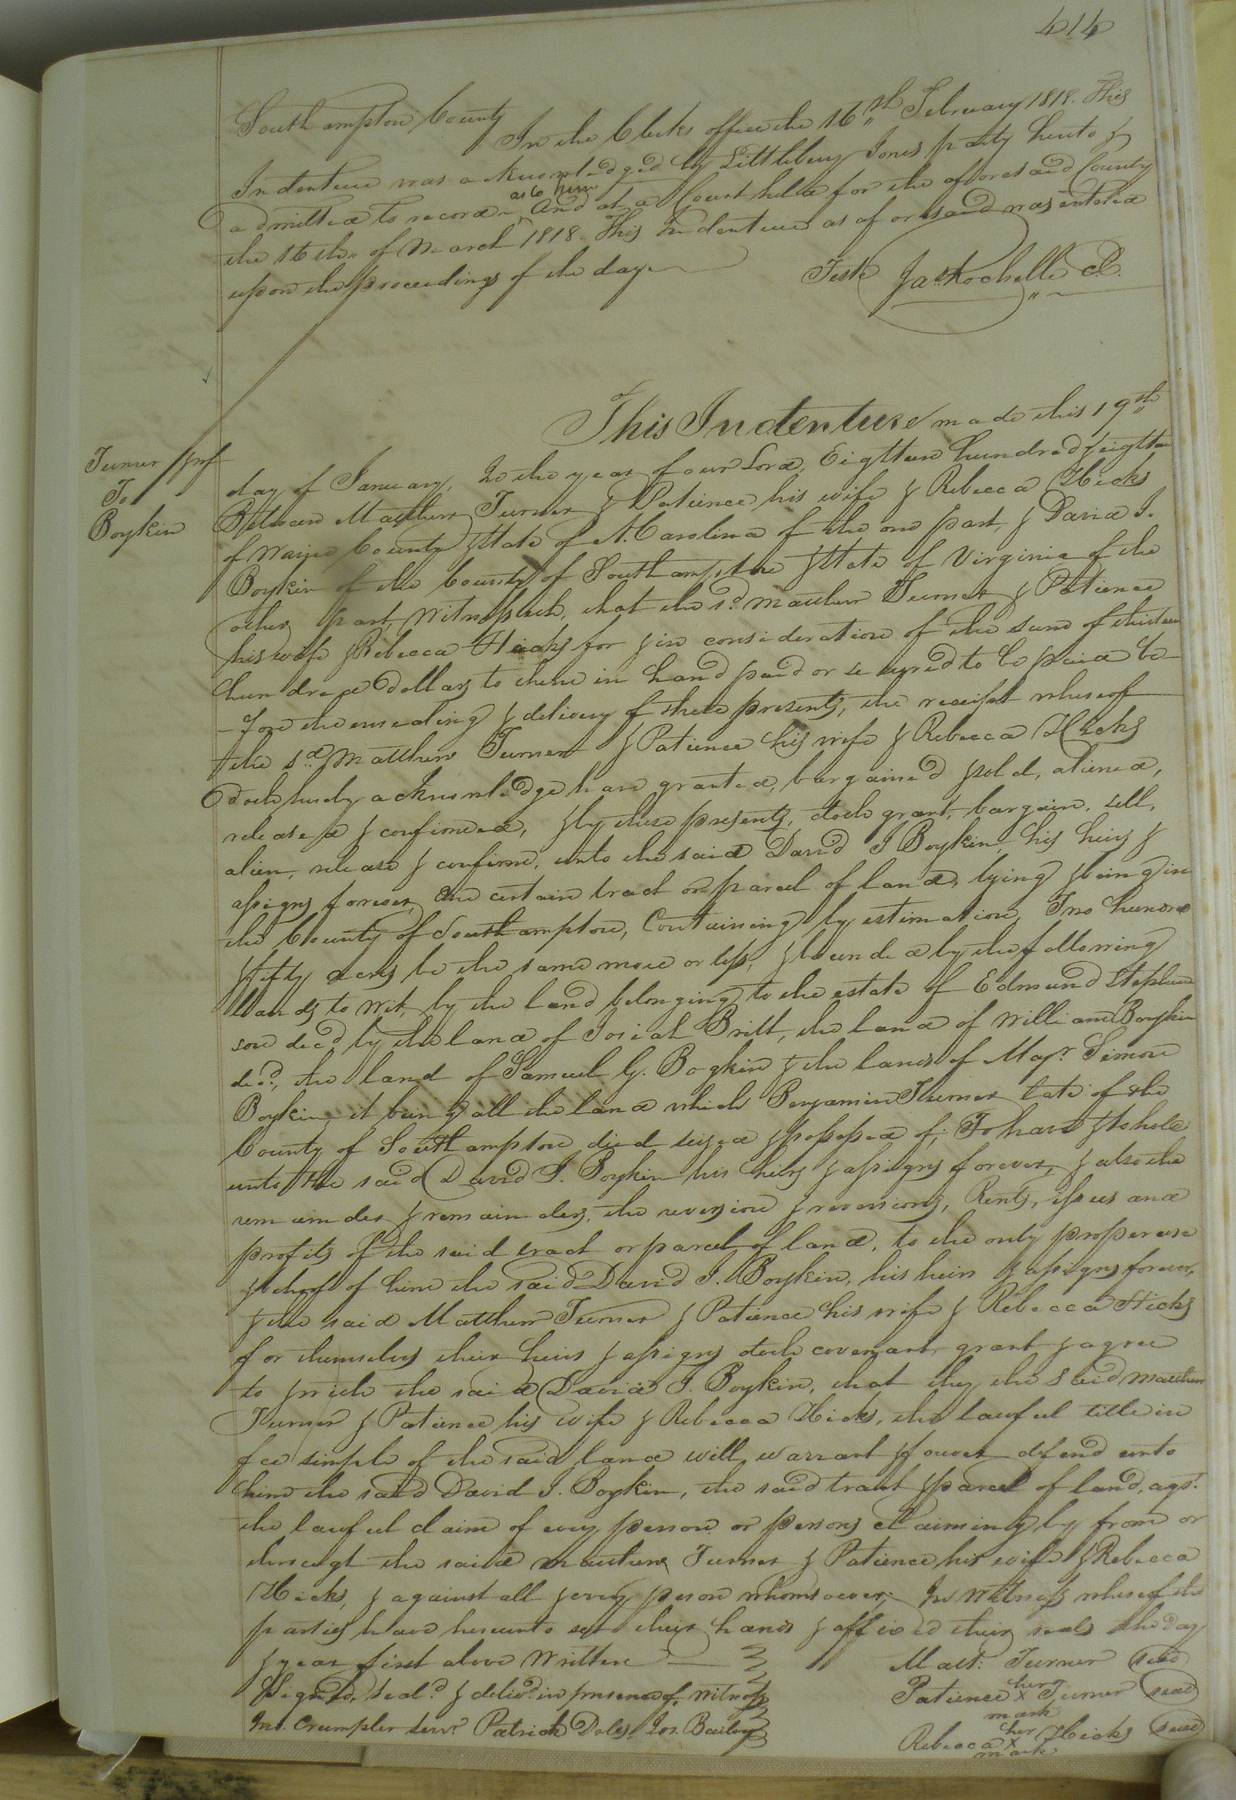 414
Southampton County
In the Clerks office the 16th February 1818. This
Indenture was acknowledged by Littlebury Jones party hereto &
admitted to record as to him And at a Court held for the aforesaid County
the 16th of March 1818. This Indenture as aforesaid was entered
upon the proceedings of the day
Teste Jas Rochelle Cl.
This Indenture made this 19th
Turner &
To
Boykin
day of January, In the year of our Lord, Eighteen hundred & eighteen
Between Matthew Turner & Patience his wife & Rebecca Hicks
of Wayne County & State of N. Carolina of the one part, & David J.
Boykin of the County of Southampton & State of Virginia of the
other part, Witnesseth, that the sd. Matthew Turner & Patience
his wife & Rebecca Hicks for & in consideration of the sum of thirteen
hundred dollars to them in hand paid or secured to be paid be-
-fore the ensealing & delivery of these presents, the receipt whereof
the sd. Matthew Turner & Patience his wife & Rebecca Hicks
doth hereby acknowledge have granted, bargained & sold, aliened,
released & confirmed, & by these presents, doth grant, bargain, sell,
alien, release & confirm, unto the said David J Boykin his heirs &
assigns forever, One certain tract or parcel of land, lying & being in
the County of Southampton, Containing by estimation, Two hundred
& fifty acres be the same more or less, & bounded by the following
lands to wit, by the land belonging to the estate of Edmund Stephen
son decd. by the land of Josiah Britt, the land of William Boykin
decd., the land of Samuel G. Boykin & the lands of Majr. Simon
Boykin it being all the land which Benjamin Turner late of the
County of Southampton died seized & possessed of; To have & to hold
unto the said David J. Boykin his heirs & assigns forever, & also the
remainder & remainders, the reversion & reversions, Rents, issues and
profits of the said tract or parcel of land, to the only proper use
& behoof of him the said David J. Boykin, his heirs & assigns forever,
& the said Matthew Turner & Patience his wife & Rebecca Hicks
for themselves their heirs & assigns doth covenant, grant & agree
to & with the said David J. Boykin, that they the said Matthew
Turner & Patience his wife & Rebecca Hicks, the lawful title in
fee simple of the said land will warrant & forever defend unto
him the said David J. Boykin, the said tract & parcel of land, agst.
the lawful claim of every person or persons claiming by from or
through the said Matthew Turner & Patience, his wife & Rebecca
Hicks, & against all & every person whomsoever; In Witness whereof the
parties have hereunto set their hands & affixed their seals the day
& year first above Written
Matt. Turner seal
Signed, seald. & delivd. in presence of, witness
Patience her x mark Turner seal
Jno. Crumpler Patrick Doles, Jos. Bailey
Rebecca her x mark Hicks seal